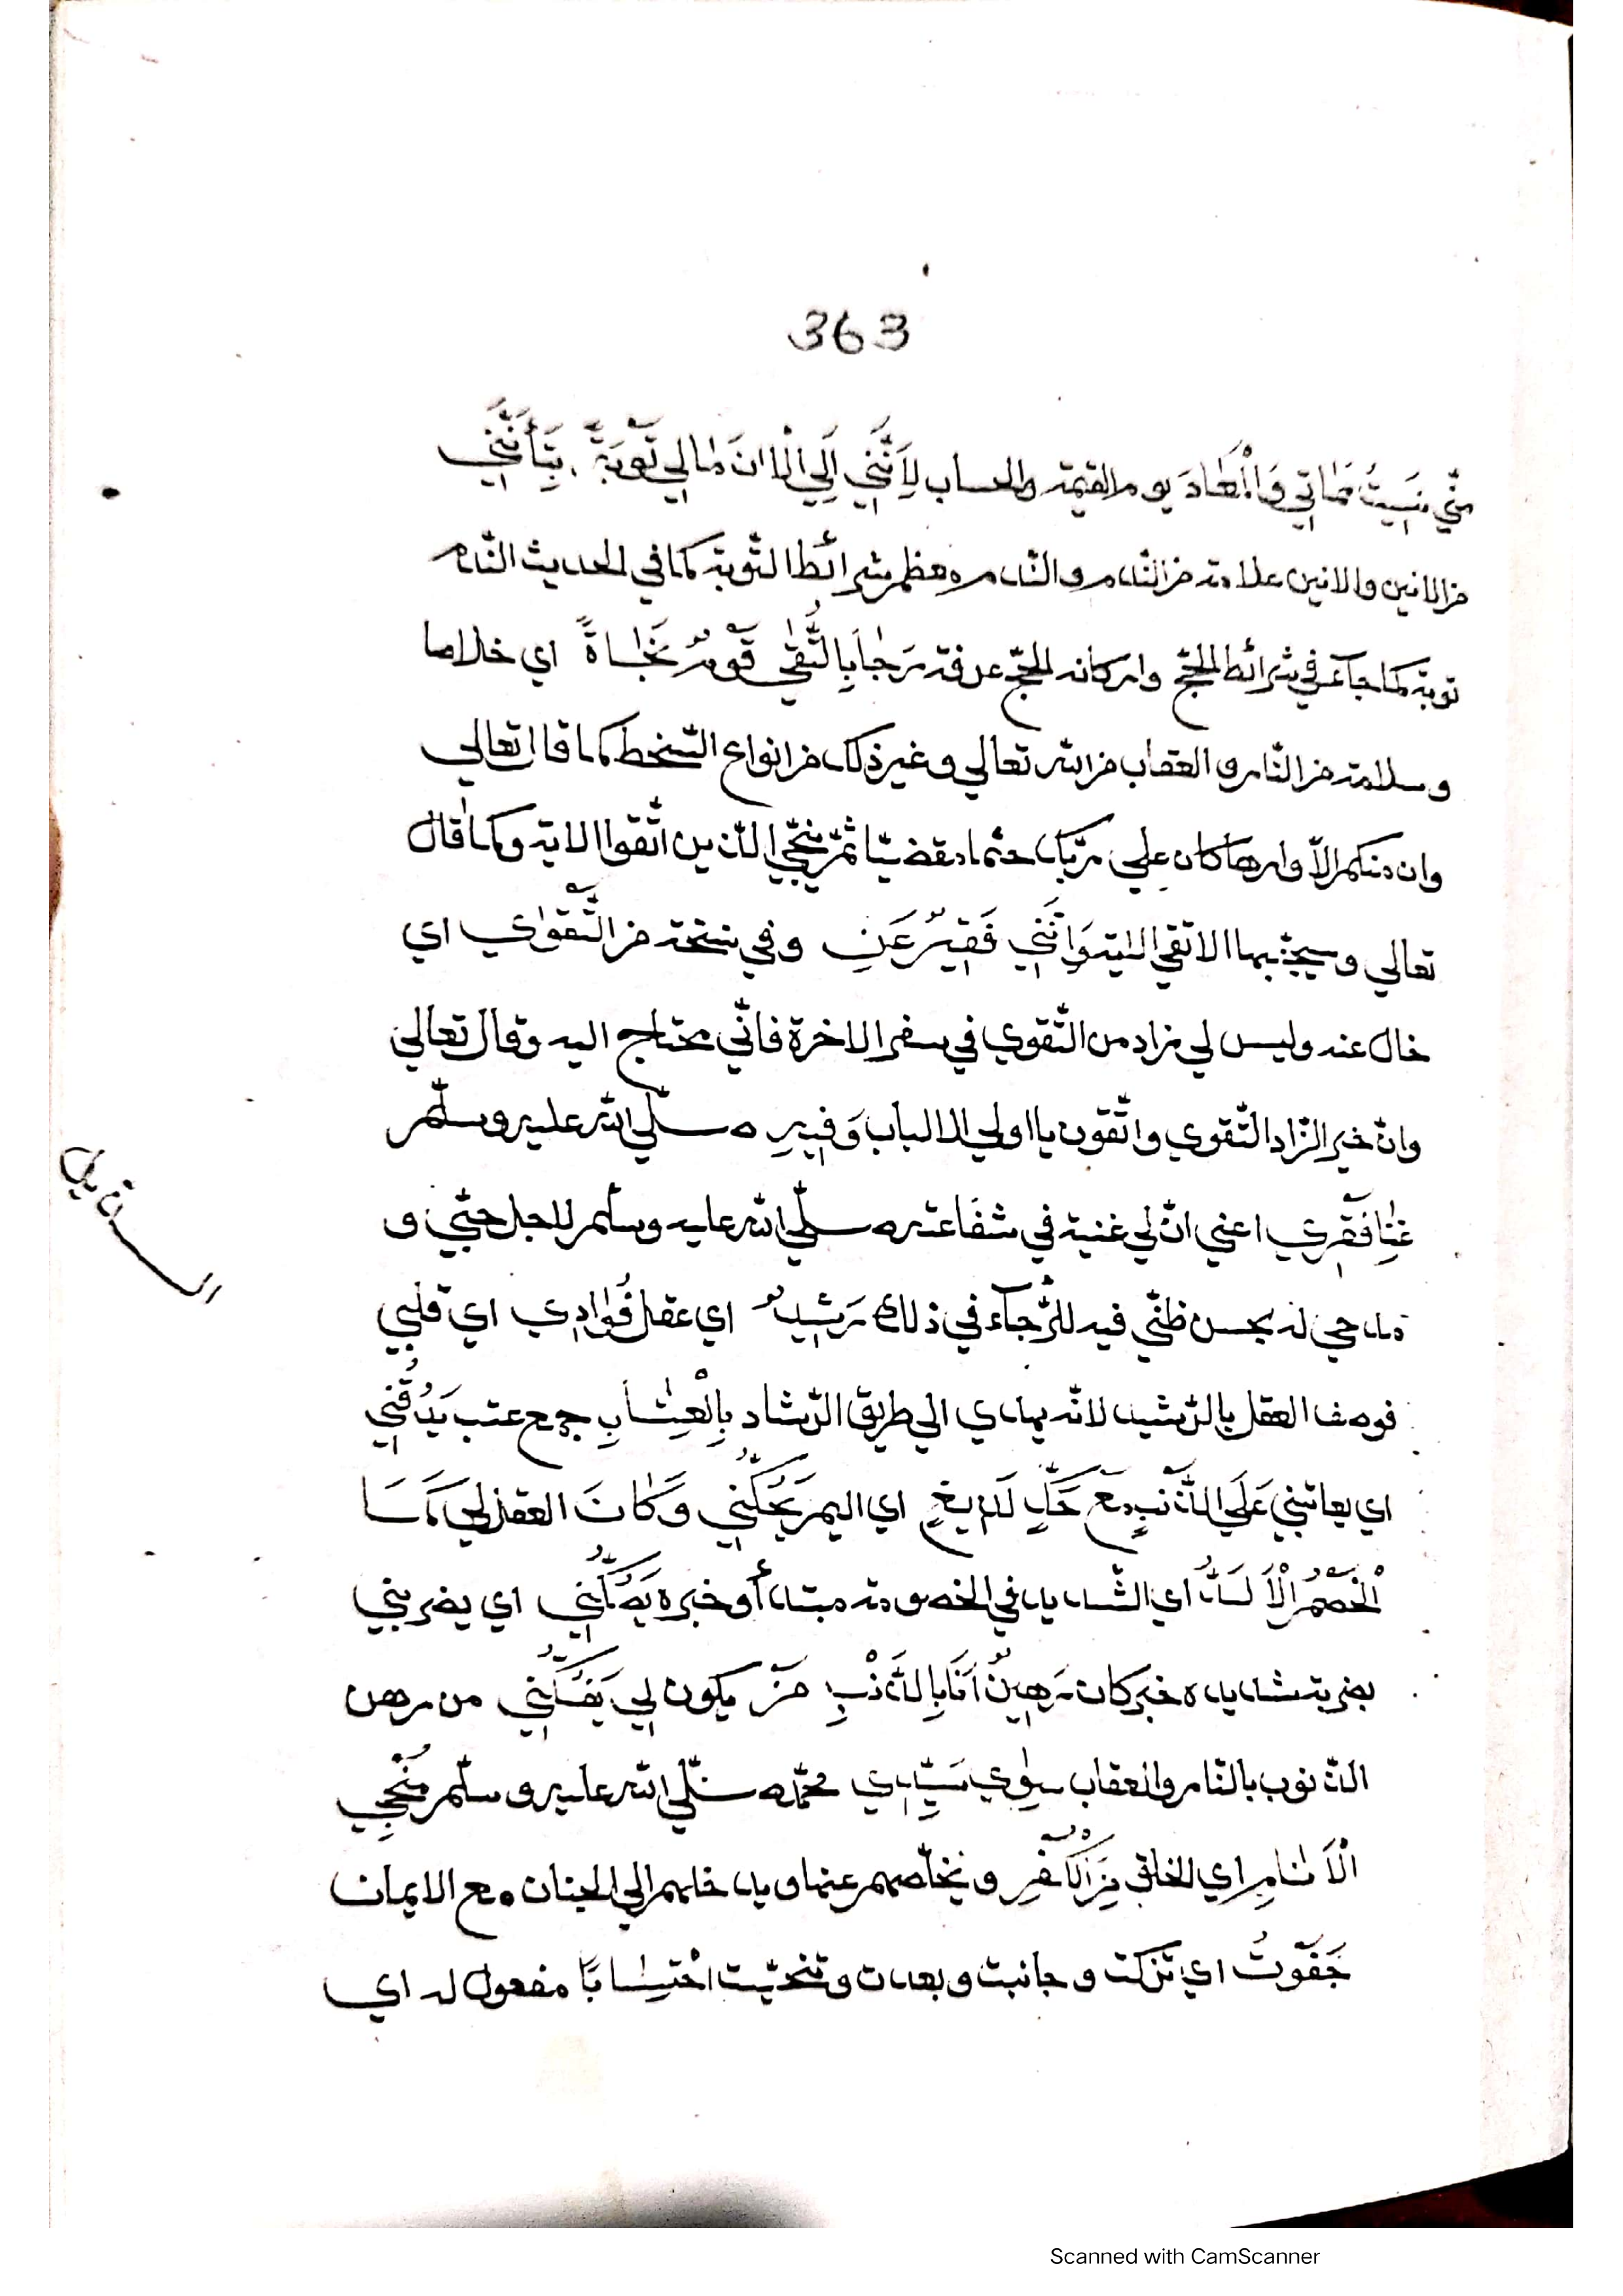 363
منّي نسيتُ مَمَاتي وَالْمَعَادَ يوم القيمة والحساب لِأَنَّنِي إِلَي الْاٰنَ مَا لِي تَوْبَةٌ بِتَأَنُّنِي
من الانين والانين علامة من النّدم والنّدم معظم شرائط التّوبة كما في الحديث النّدم
توبة كما جآء في شرائط الحجّ واركانه الحجّ عرفة رَجَا بِالتُّقٰي قَوْمٌ نَجَاةً اي خلاصا
وسلامة من النّار والعقاب من الله تعالي وغير ذلك من انواع السّخط كما قال تعالي
وان منكم الاّ واردها كان علي ربّك حتما مقضيّا ثمّ ننجّي الّذين اتّقوا الاية وكما قال
تعالي وسيجنّبها الاتقي الاية وَاِنَّنِي فَقِيرٌ عَنِ وفي نسخة من التَّقْوٰي اي
خال عنه وليس لي زاد من التّقوي في سفر الاخرة فانّي محتاج اليه وقال تعالي
وانّ خير الزّاد التّقوي واتّقون يا اولي الالباب وَفِيهِ صلّي الله عليه وسلّم
غِنَا فَقْرِي اعني انّ لي غنية في شفاعته صلّي الله عليه وسلّم لاجل حبّي و
مدحي له بحسن ظنّي فيه للرّجآء في ذلك رَشِيدٌ اي عقل فُوَادِي اي قلبي
فوصف العقل بالرّشيد لانّه يهدي الي طريق الرّشاد بِالْعِتَابِ جمع عتب يَدُقُّنِي
اي يعاتبني عَلَي الذَّنْبِ مَعَ حَكٍّ اي اليم يَحُكُّنِي وَكَانَ العقل لي
الْخَصْمُ الْأَلَدُّ اي الشّديد في الخصومة مبتدأ وخبره يَصُكُّنِي اي يضربني
بضربة شديدة خبر كان رَهِينٌ أَنَا بِالذَّنْبِ مَنْ يكون لي يَفُكُّنِي من رهن
الذّنوب بالنّار والعقاب سِوٰي سَيِّدِي محمّد صلّي الله عليه وسلّم مُنْجِي
الْأَنَامِ اي الخلق مِنَ الْكُفْرِ ويخلّصهم عنها ويدخلهم الي الجنان مع الايمان
جَفَوْتُ اي تركت وجانبت وبعدت وتنحّيت احْتِسَابًا مفعول له اي
Scanned with CamScanner